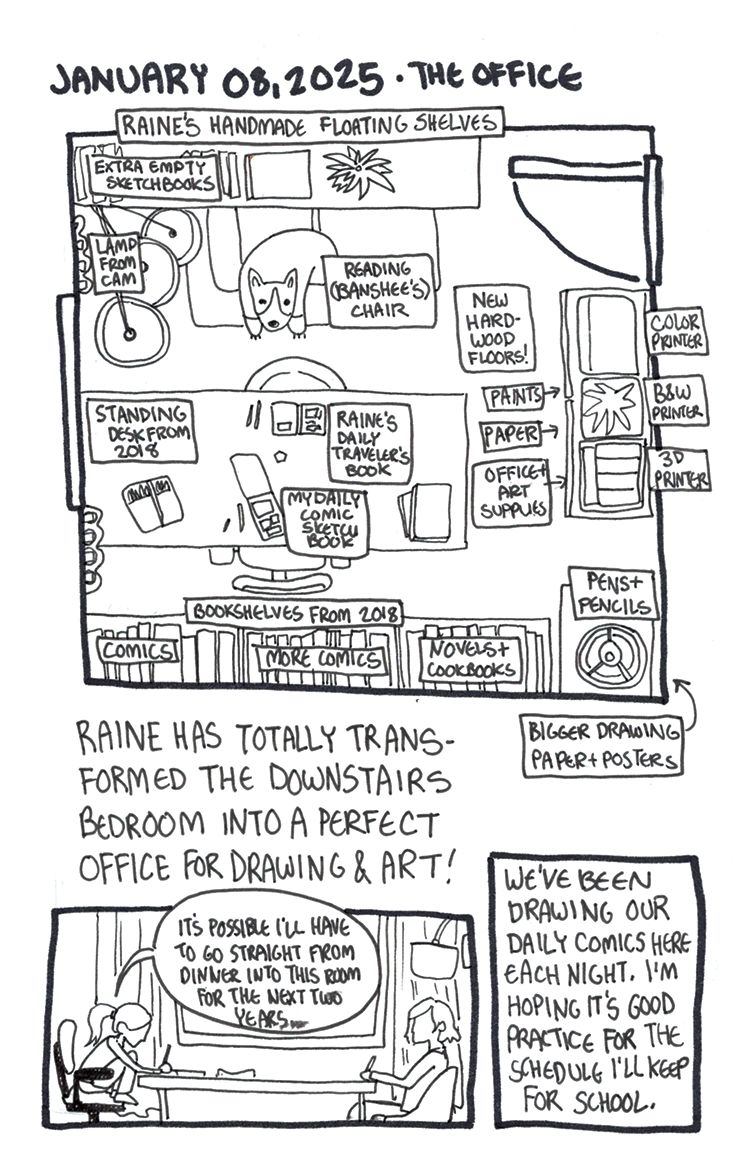 JANUARY 08, 2025 · THE OFFICE
RAINE'S HANDMADE FLOATING SHELVES
EXTRA EMPTY
SKETCHBOOKS
LAMP
FROM
CAM
READING
(BANSHEE'S)
CHAIR
NEW
HARD-
WOOD
FLOORS!
COLOR
PRINTER
PAINTS
B&W
PRINTER
PAPER
3D
PRINTER
OFFICE+
ART
SUPPLIES
STANDING
DESK FROM
2018
RAINE'S
DAILY
TRAVELER'S
BOOK
MY DAILY
COMIC
SKETCH
BOOK
PENS+
PENCILS
BOOKSHELVES FROM 2018
COMICS
MORE COMICS
NOVELS+
COOKBOOKS
BIGGER DRAWING
PAPER+POSTERS
RAINE HAS TOTALLY TRANS-
FORMED THE DOWNSTAIRS
BEDROOM INTO A PERFECT
OFFICE FOR DRAWING & ART!
IT'S POSSIBLE I'LL HAVE
TO GO STRAIGHT FROM
DINNER INTO THIS ROOM
FOR THE NEXT TWO
YEARS...
WE'VE BEEN
DRAWING OUR
DAILY COMICS HERE
EACH NIGHT. I'M
HOPING IT'S GOOD
PRACTICE FOR THE
SCHEDULE I'LL KEEP
FOR SCHOOL.